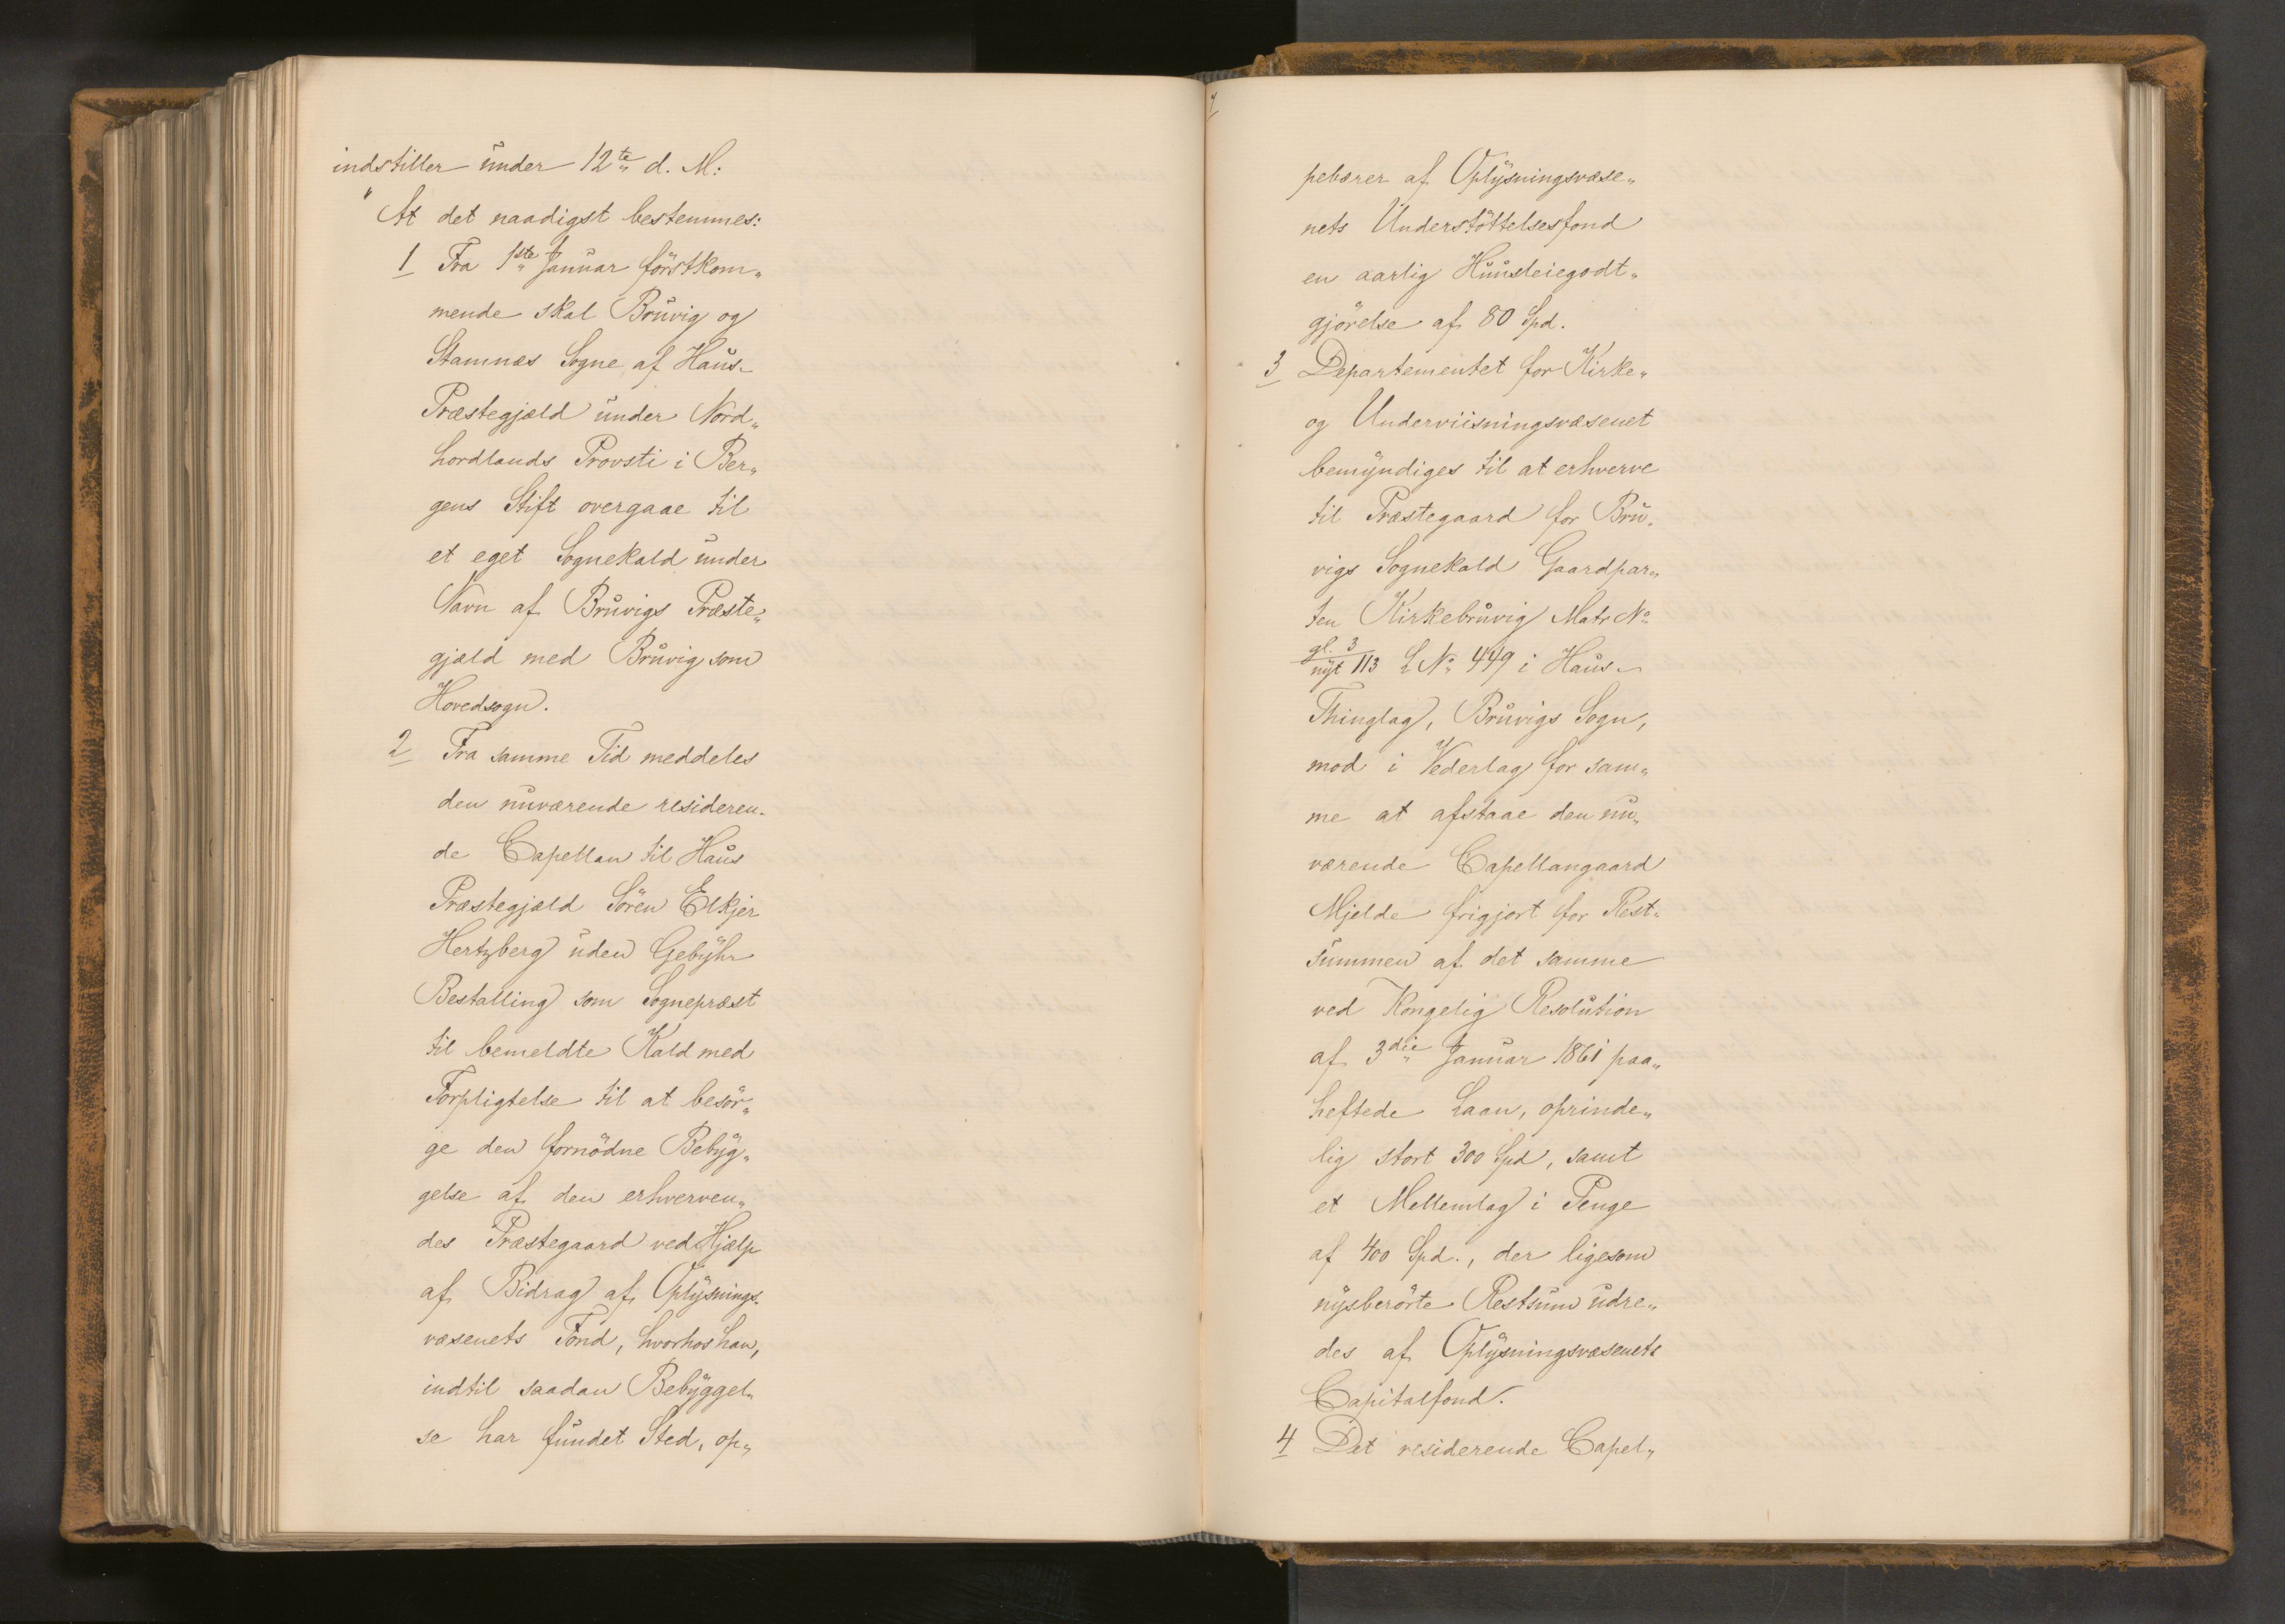 indstiller under 12te d. M:
"At det naadigst bestemmes:
1 Fra 1ste Januar förstkom„
mende skal Bruvig og
Stamnæs Sogne af Haus-
Præstegjæld under Nord„
hordlands Provsti i Ber„
gens Stift overgaae til
et eget Sognekald under
Navn af Bruvigs Præste„
gjæld med Bruvig som
Hovedsogn.
2 Fra samme Tid meddeles
den nuværende resideren-
de Capellan til Haus
Præstegjæld Sören Elkjer
Hertzberg uden Gebyhr
Bestalling som Sognepræst
til bemeldte Kald med
Forpligtelse til at besör„
ge den fornödne Bebyg„
gelse af den erhverven„
des Præstegaard ved Hjælp
af Bidrag af Oplysnings-
væsenets Fond, hvorhos han,
indtil saadan Bebyggel„
se har fundet Sted, op„
pebærer af Oplysningsvæse„
nets Understöttelsesfond
en aarlig Huusleiegodt„
gjörelse af 80 Spd.
3 Departementet for Kirke„
og Underviisningsvæsenet
bemyndiges til at erhverve
til Præstegaard for Bru„
vigs Sognekald Gaardpar„
ten Kirkebruvig Matr No
gl. 3
nyt 113 L No 449 i Haus-
Thinglag, Bruvigs Sogn,
mod i Vederlag for sam„
me at afstaae den nu„
værende Capellangaard
Mjelde frigjort for Rest„
summen af det samme
ved Kongelig Resolution
af 3die Januar 1861 paa„
heftede Laan, oprinde„
lig stort 300 Spd, samt
et Mellemlag i Penge
af 400 Spd., der ligesom
nysberörte Restsum udre„
des af Oplysningsvæsenets
Capitalfond.
4 Det residerende Capel„